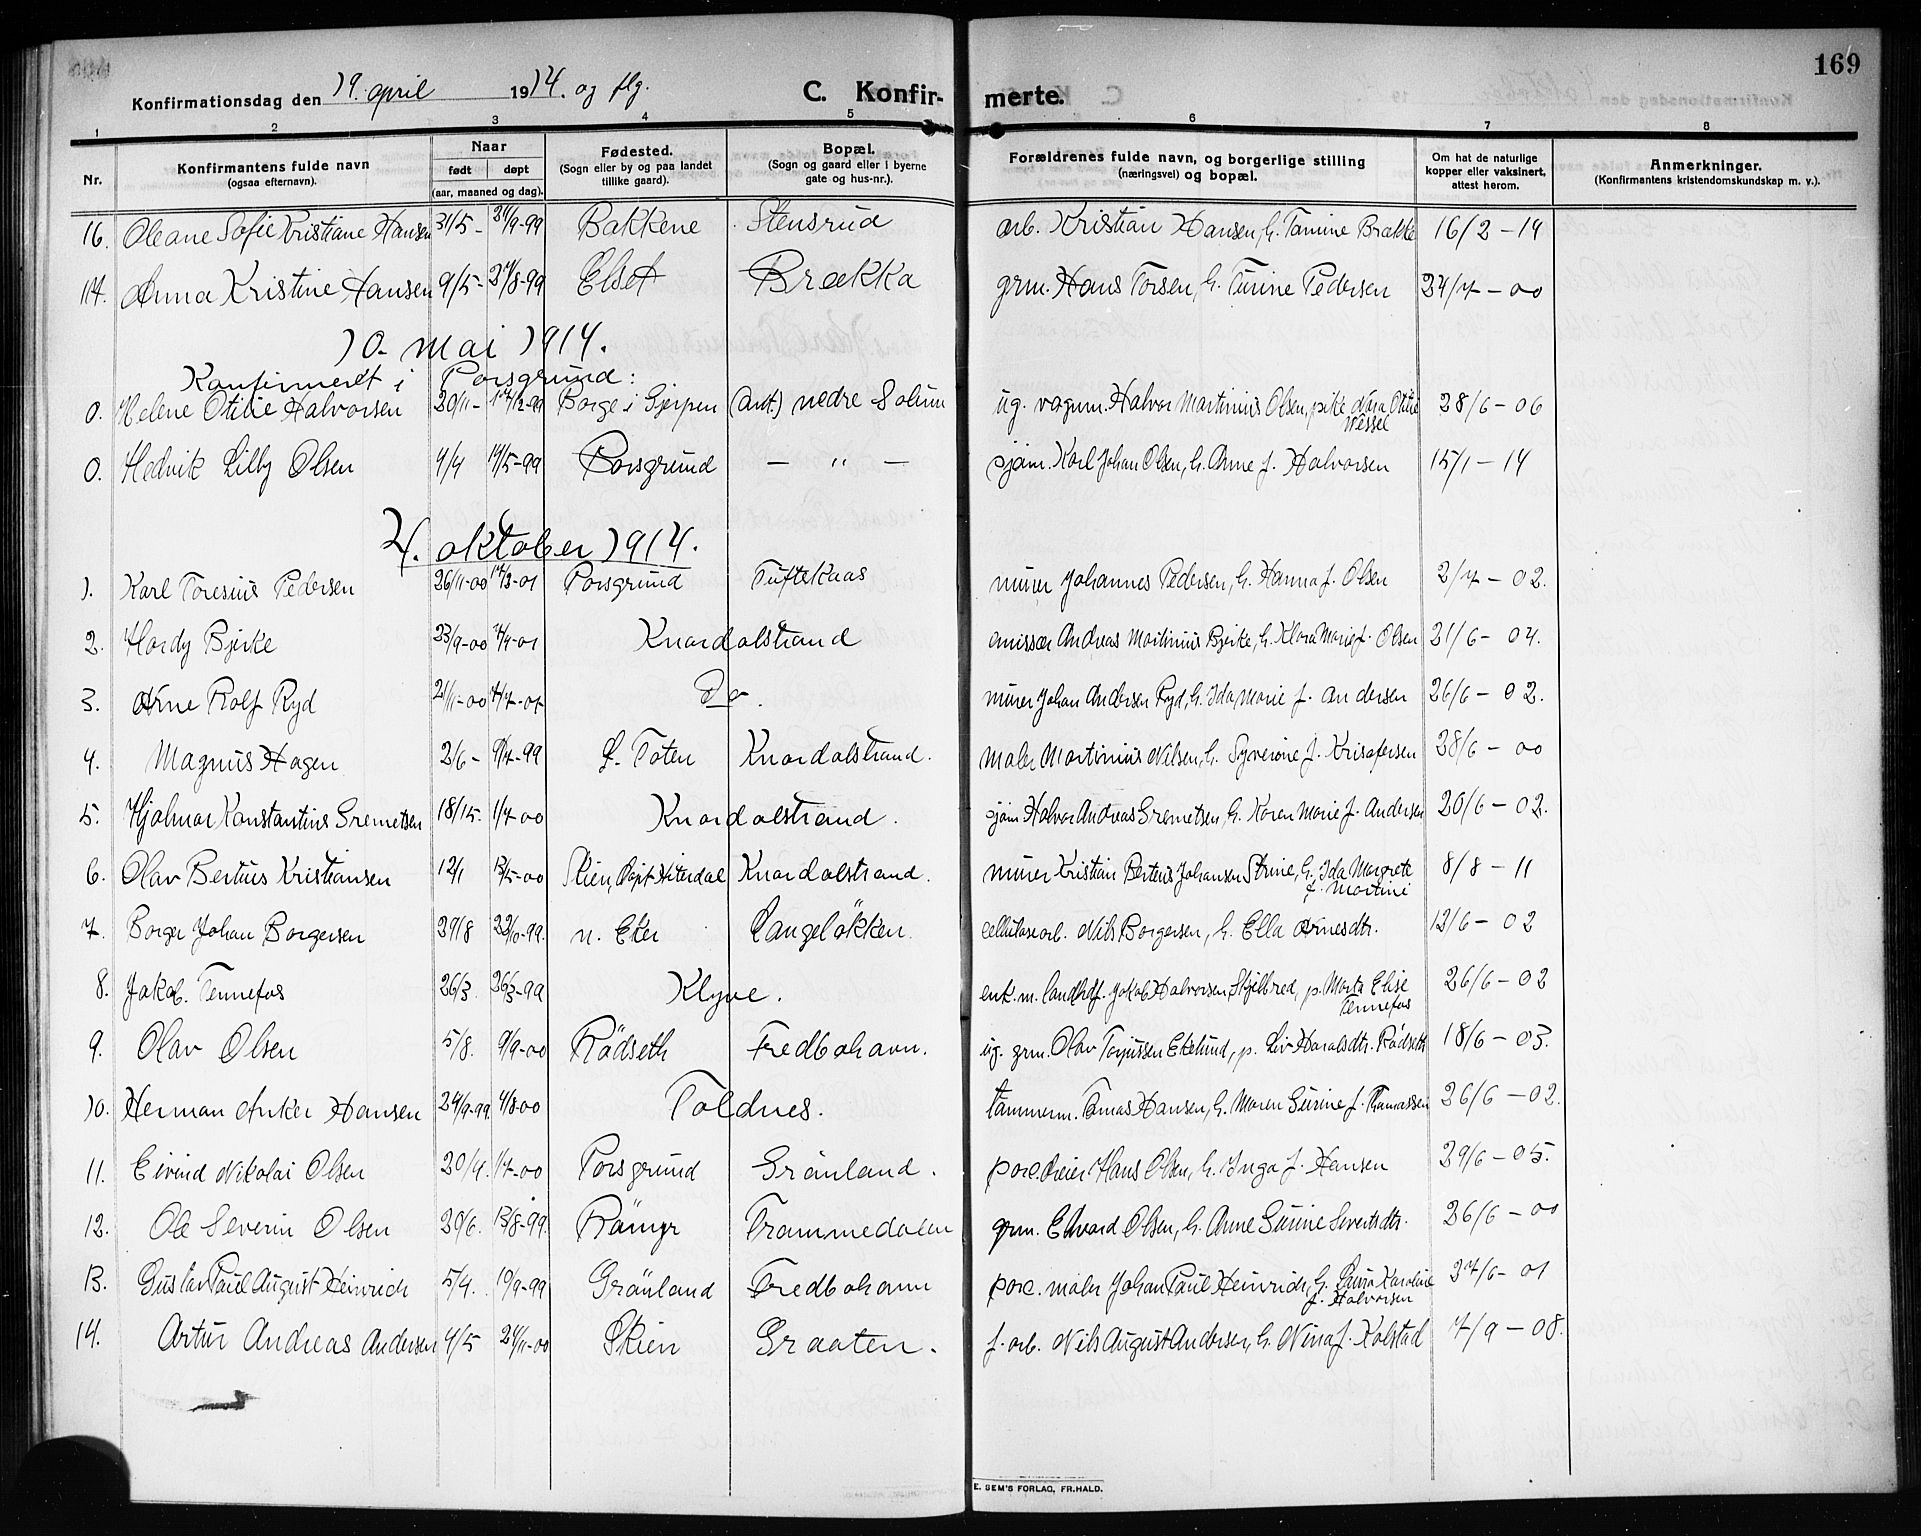 169
Konfirmationsdag den 19. april 1914. og flg. C. Konfir- merte.
1 2 3 4 5 6 7 8
Nr. Konfirmantens fulde navn (ogsaa efternavn). Naar født døpt (aar, maaned og dag). Fødested. (Sogn eller by og paa landet tillike gaard). Bopæl. (Sogn og gaard eller i byerne gate og hus-nr.). Forældrenes fulde navn, og borgerlige stilling (næringsvei) og bopæl. Om hat de naturlige kopper eller vaksinert, attest herom. Anmerkninger. (Konfirmantens kristendomskundskap m. v.).
16. Oleane Sofie Kristiane Hansen 31/5- 24/9-99 Bakkene Stensrud arb. Kristian Hansen, h. Tamine Brække 16/2-14
17. Anna Kristine Hansen 9/5- 27/8-99 Elset Brækka grm. Hans Torsen, h. Turine Pedersen 24/7-00
10. mai 1914.
Konfirmert i Porsgrund:
0. Helene Otilie Halvorsen 20/11- 17/12-99 Borge i Gjerpen (Ant.) nedre Solum ug. vognm. Halvor Martinius Olsen, pike Nora Otilie Wessel 28/6-06
0. Hedvik Lilly Olsen 4/4 14/5-99 Porsgrund — " — sjøm. Karl Johan Olsen, h. Anne f. Halvorsen 15/1-14
4. oktober 1914.
1. Karl Toresius Pedersen 26/11-00 17/3-01 Porsgrund Tuftekaas murer Johannes Pedersen, h. Hanna f. Olsen 2/7-02.
2. Hardy Bjerke 23/9-00 7/4-01 Knardalstrand emissær Andreas Martinius Bjerke, h. Klara Marie f. Olsen 21/6-04.
3. Arne Rolf Ryd 21/11-00 7/7-01 Do. murer Johan Andersen Ryd, h. Ida Marie f. Andersen 26/6-02.
4. Magnus Hagen 2/6- 9/7-99 Ø. Toten Knardalstrand. maler Martinius Nilsen, h. Syverine f. Krisofersen 28/6-00
5. Hjalmar Konstantius Gremetsen 18/15. 1/7-00 Knardalstrand. sjøm Halvor Andreas Gremetsen, h. Karen Marie f. Andersen 20/6-02.
6. Olav Bertius Kristiansen 12/1 13/5-00 Skien, døpt Hiterdal Knardalstrand. murer Kristian Bertius Johansen Strine, h. Ida Margrete f. Martini 8/8-11
7. Borger Johan Borgersen 29/8 22/10-99. n. Eker Langeløkken cellulosearb. Nils Borgersen, h. Ella Arnesdtr. 12/6-02
8. Jakob Tennefos 26/3. 26/3-99 Klyve. enk. m. landhdl. Jakob Halvorsen Skjelbred, p. Marta Elise Tennefos 26/6-02
9. Olav Olsen 5/8. 9/9-00 Rødseth Fredbohavn. ug. grm. Olav Torjussen Ekelund, p. Liv Haralsdtr. Rødseth 18/6-03.
10. Herman Anker Hansen 24/9-99 4/8-00 Toldnes. tømmerm. Tomas Hansen, h. Maren Surine f. Thomassen 26/6-02.
11. Eivind Nikolai Olsen 20/4. 1/7-00 Porsgrund Grønland. porc.dreier Hans Olsen, h. Inga f. Hansen 29/6-05.
12. Ole Severin Olsen 20/6. 13/8-99. Rønningr Frammedalen grm. Edvard Olsen, h. Anne Surine Sivertsdtr. 26/6-00
13. Gustav Paul August Heinrich 5/4. 10/9-99 Grønland Fredbohavn porc. maler Johan Paul Heinrich, h. Luisa Karoline f. Halvorsen 27/6-01
14. Artur Andreas Andersen 4/5 24/11-00 Skien Graaten. f. arb. Nils August Andersen, h. Nina f. Kolstad 7/9-08.
E. SEM'S FORLAG, FR.HALD.